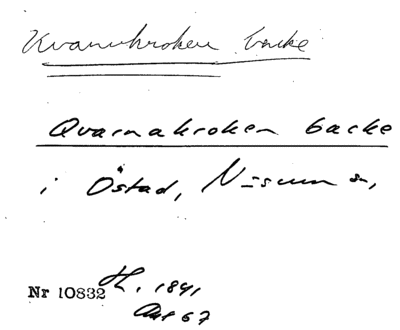 Kvarnkroken backe
Qvarnakroken backe
i Östad, Nisum sn,
Nr 10832 H. 1841
Akt 67